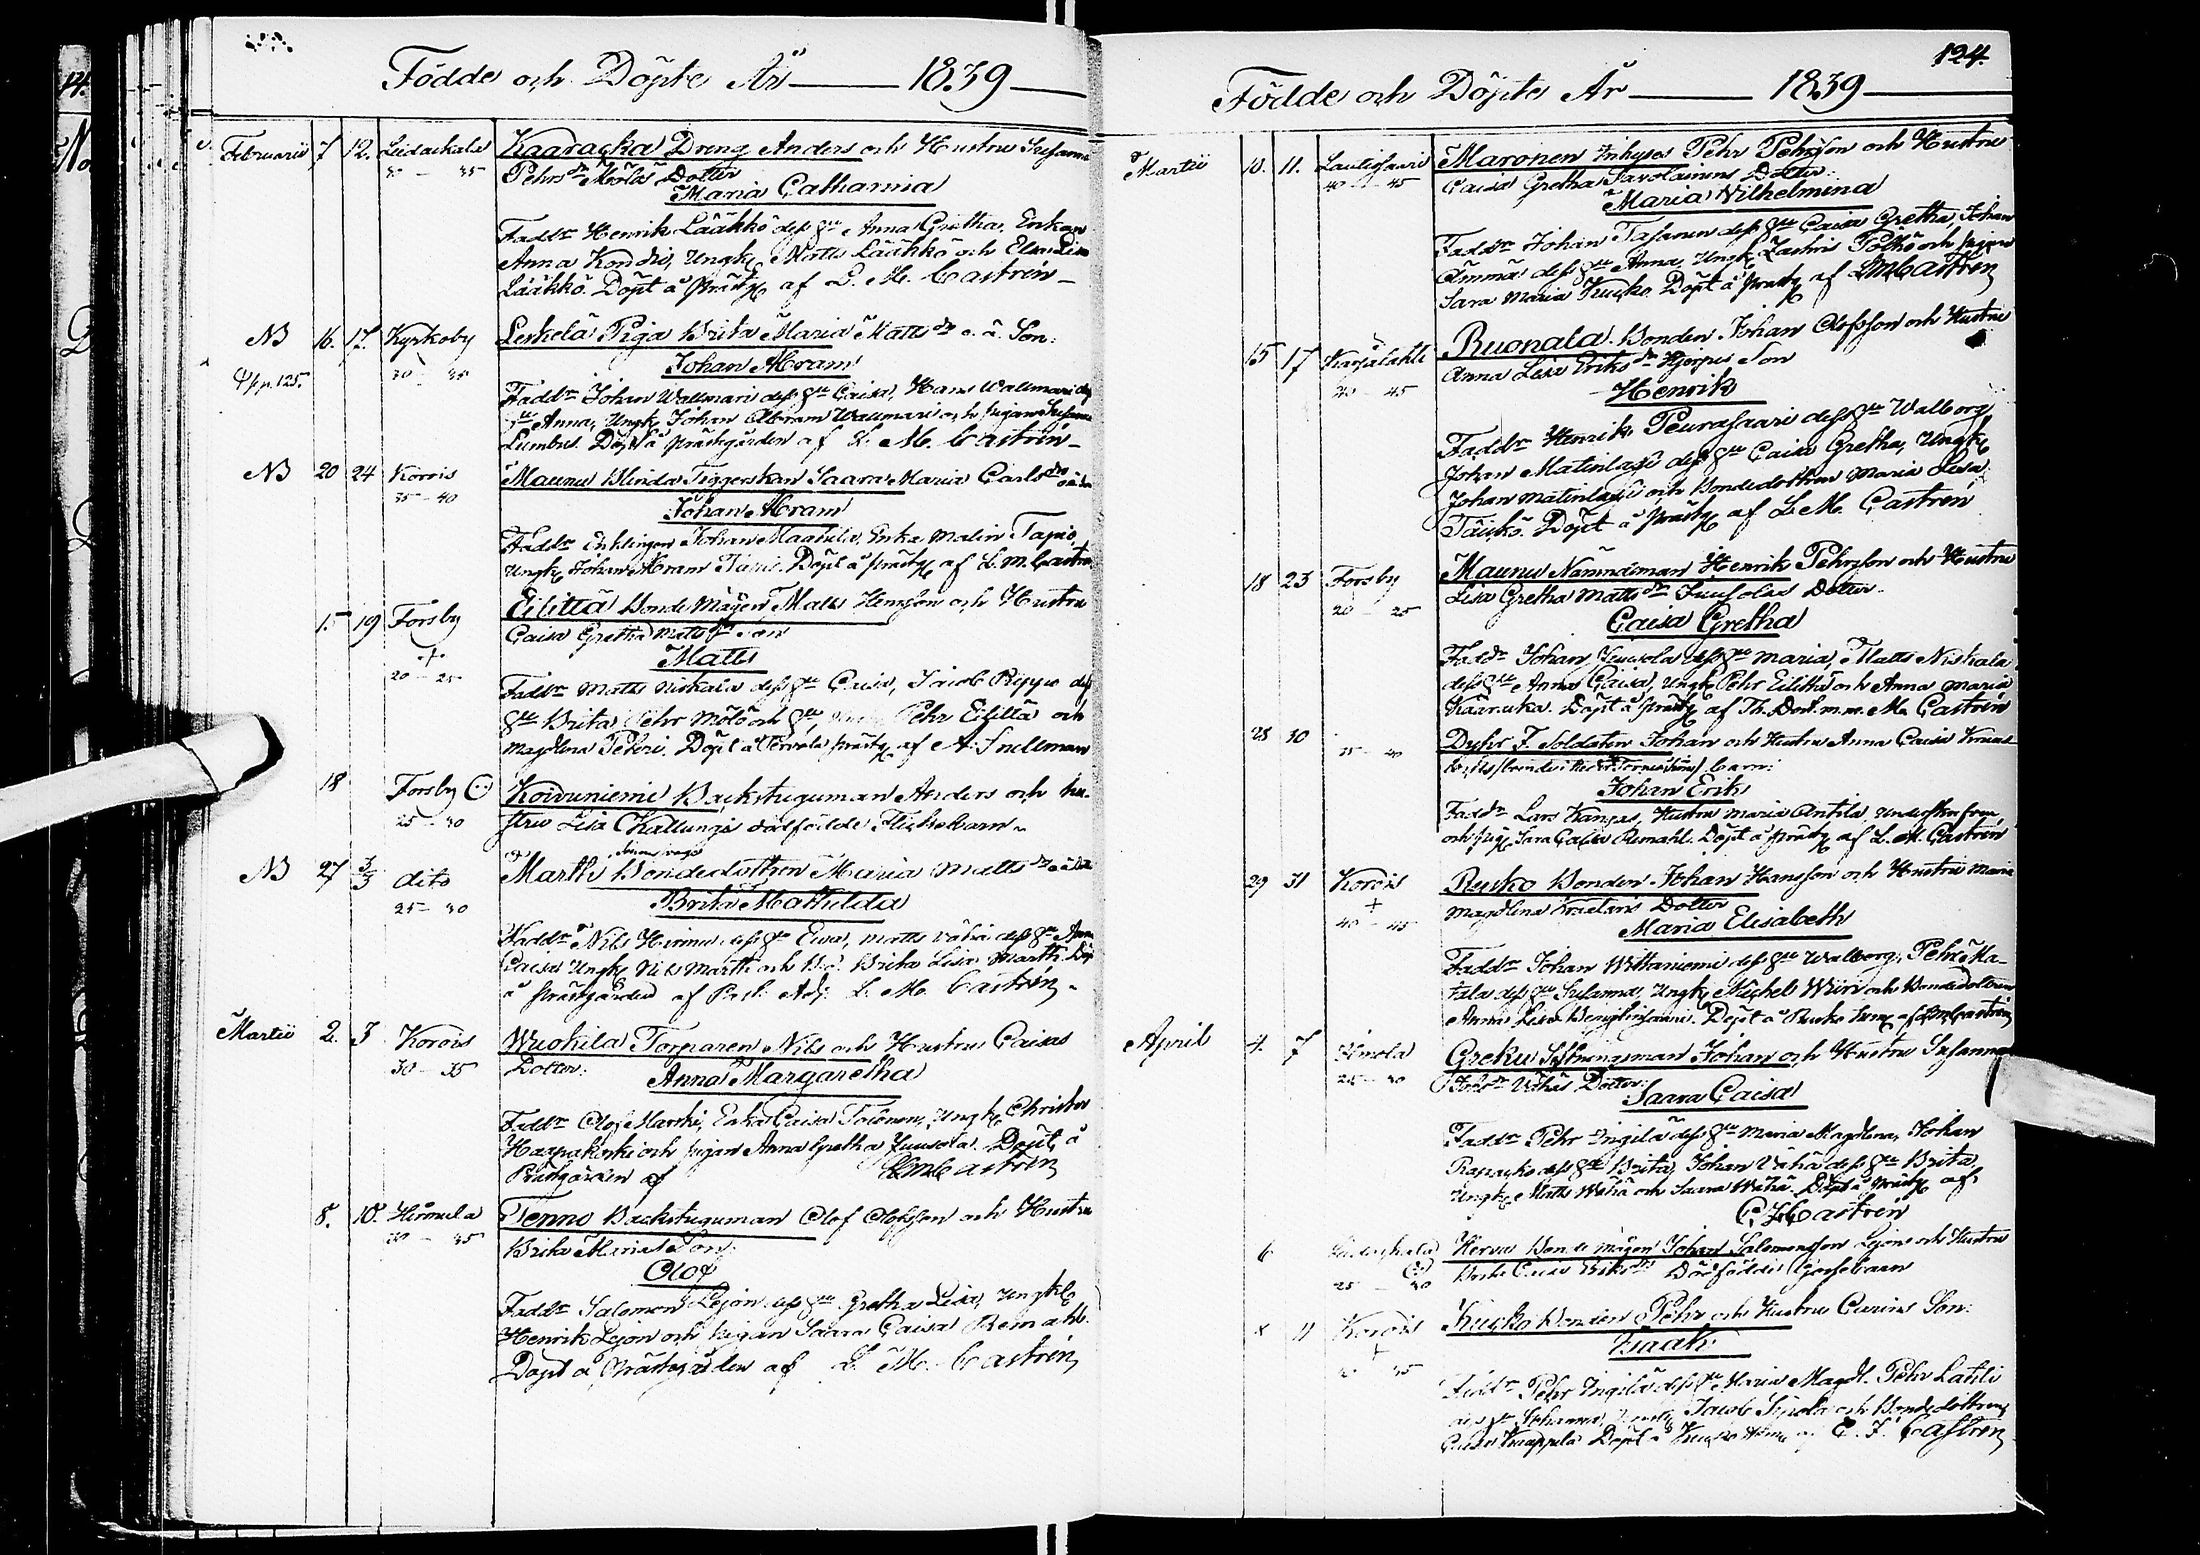 Födde och Döpte År 1839
Februarii 7 12. Leidackala Kaaracka Dreng Anders och Hustru Susanna
30 - 35 Pehrs dr Mölä Dotter
Maria Catharina
Faddr Henrik Lääkkö dess hu Anna Gretha, Enkan
Anna Kondio, Ungk Matts Lääkkö och Elsa Lisa
Lääkkö. Döpt å Prästg af L. M. Castrén
NB 16. 17. Kyrkoby Leskelä Piga Brita Maria Matts dr o. ä. Son:
30 - 35 Johan Abram
p. 125.
Faddr Johan Wallmari dess hu Caisa, Hans Wallmari dess
hu Anna, Ungk Johan Abram Wallmari och pigan Susanna
Lumbus. Döpt å prästgården af L. M. Castrén
NB 20 24 Korois Maunu Blinda Tiggerskan Saara Maria Carls dr
35 - 40 Johan Abram
Faddr Johan Maaninka, Enka Malin Tapio,
Ungk Johan Abram Döpt å prästg af L. M. Castrén
15 19 Forsby Eilittä Bonde Mågen Matts Henrsson och Hustru
+ Caisa Gretha Matts dr Son
20 - 25 Matts
Faddr Matts Niskala dess hu Caisa, Jacob Rippo dess
hu Brita, Pehr Mölö och hu Pehr Eilittä och
Magdlena Pekuri. Döpt å Tervola prästg af A. Snellman
18 Forsby Koivuniemi Backstuguman Anders och hu-
25 - 30 stru Lisa Kallungis dödfödde Flickebarn
NB 27 3/3 dito Martti Bondedottren Maria Matts dr
25 - 30 Brita Mathilda
Faddr Nils Hirmu dess hu Ewa, Matts Vähä dess hu Anna
Caisa Ungk Nils Martti och Bd. Brita Lisa Martti Döpt
å prästgården af Past. Adj. L. M. Castrén
Martii 2. 3 Korois Wuokila Torparen Nils och Hustrus Caisas
30 - 35 Dotter: Anna Margaretha
Faddr Olof Martti, Enka Caisa Toionen, Ungk Christer
Haapakoski och pigan Anna Gretha Juusola. Döpt å
Prästgården af LMCastrén
8. 10. Hirmula Tenno Backstuguman Olof Olofsson och Hustru
30 - 35 Brita Marias Son:
Olof
Faddr Salomon Lejon dess hu Gretha Lisa, Ungk
Henrik Lejon och pigan Saara Caisa Remahl.
Döpt å Prästgården af L. M. Castrén
124.
Födde och Döpte År 1839
Martii 10. 11. Lautiosaari Maronen Inhyses Pehr Pehrsson och Hustru
40 - 45 Caisa Gretha Savolainens Dotter:
Maria Vilhelmina
Faddr Johan Tasanen dess hu Caisa Gretha, Johan
Ämmä dess hu Anna, Ungk Zachris Pölhö och pigan
Sara Maria Kucko. Döpt å prästg af LMCastrén
15 17 Karjalahti Ruonala. Bonden Johan Olofsson och Hustru
40 - 45 Anna Lisa Eriks dr Hjerpes Son
Henrik
Faddr Henrik Peurasaari dess hu Walborg,
Johan Matinlassi dess hu Caisa Gretha, Ungk
Johan Matinlassi och Bondedottren Maria Lisa
Täikkö. Döpt å prästg af L. M. Castrén
18 23 Forsby Maunu Nämndeman Henrik Pehrsson och Hustru
20 - 25 Lisa Gretha Matts dr Juusolas Dotter.
Caisa Gretha
Faddr Johan Juusola dess hu Maria, Matts Niskala
dess hu Anna Caisa, Ungk Pehr Eilittä och Anna Maria
Kaaracka. Döpt å prästg af Th. Doct. m. m. M. Castrén
28 30 Dyhr F. Soldaten Johan och Hustru Anna Caisa
35 - 40 barn:
Johan Erik
Faddr Lars Kangas, Hustru Maria Antila,
och pig. Sara Caisa Remahl. Döpt å prästg af L. M. Castrén
29 31 Korois Rucko Bonden Johan Hansson och Hustru Maria
+ Magdlena Dotter
40 - 45 Maria Elisabeth
Faddr Johan Wittaniemi dess hu Walborg, Pehr Ma-
tala dess hu Susanna, Ungk Michel Wiiri och Bondedottren
Anna Lisa Döpt å Rucko hem af LMCastrén
April 4. 7 Ilmola Greku Sytningsman Johan och Hustru Susanna
25 - 30 Vähäs Dotter:
Saara Caisa
Faddr Pehr Ingilä dess hu Maria Magdlena, Johan
Rapacko dess hu Brita, Johan Vähä dess hu Brita,
Ungk Matts Wähä och Saara Wähä. Döpt å prästg af
C. J. Castrén
6 Leidackala Herva Bonde mågen Johan Salomonsson Lejon och Hustru
25 - 30 Brita Caisa Eriks dr Dödfödde Gossebarn
8 11 Korois Kucko Bonden Pehr och Hustrus Carins Son:
+ Isaak
35
Faddr Pehr Ingilä dess hu Maria Magdl. Pehr Lahti
dess hu Johanna, Jacob Sipola och Bondedottren
Knappila Döpt å Kucko hem af C. J. Castrén